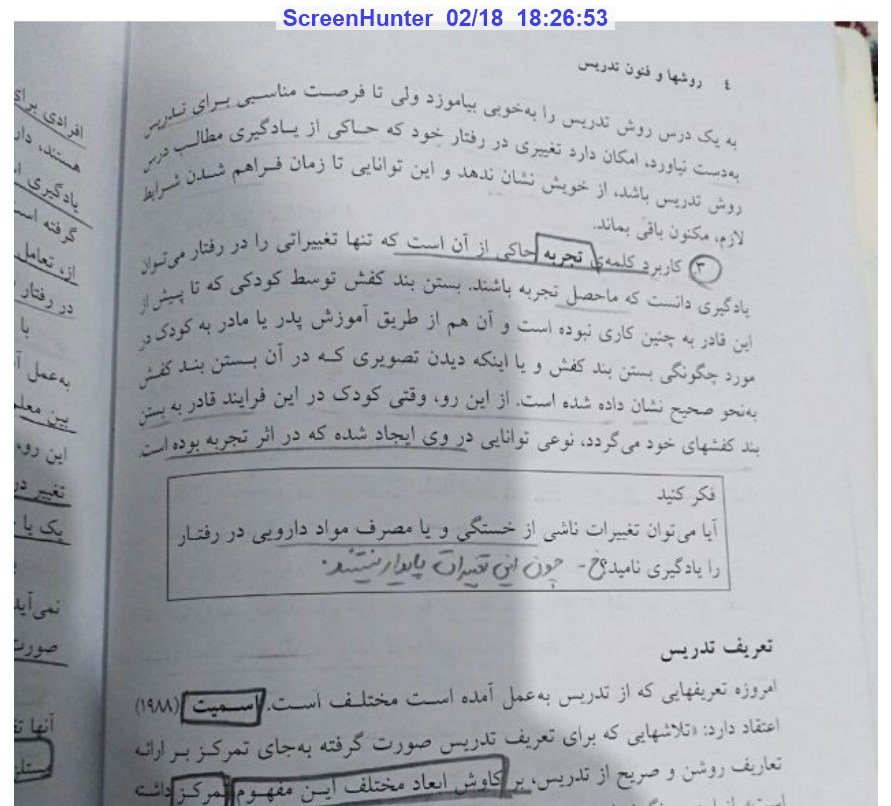 ScreenHunter 02/18 18:26:53
٤ روشها و فنون تدریس
به یک درس روش تدریس را به‌خوبی بیاموزد ولی تا فرصت مناسبی برای تدریس
به‌دست نیاورد، امکان دارد تغییری در رفتار خود که حاکی از یادگیری مطالب درس
روش تدریس باشد، از خویش نشان ندهد و این توانایی تا زمان فراهم شدن شرایط
لازم، مکنون باقی بماند.
۳ کاربرد کلمه‌ی تجربه حاکی از آن است که تنها تغییراتی را در رفتار می‌توان
یادگیری دانست که ماحصل تجربه باشند. بستن بند کفش توسط کودکی که تا پیش از
این قادر به چنین کاری نبوده است و آن هم از طریق آموزش پدر یا مادر به کودک در
مورد چگونگی بستن بند کفش و یا اینکه دیدن تصویری که در آن بستن بند کفش
به‌نحو صحیح نشان داده شده است. از این رو، وقتی کودک در این فرایند قادر به بستن
بند کفشهای خود می‌گردد، نوعی توانایی در وی ایجاد شده که در اثر تجربه بوده است
فکر کنید
آیا می‌توان تغییرات ناشی از خستگی و یا مصرف مواد دارویی در رفتار
را یادگیری نامید؟ خ - چون این تغییرات پایدار نیستند.
تعریف تدریس
امروزه تعریفهایی که از تدریس به‌عمل آمده است مختلف است. اسمیت (۱۹۸۸)
اعتقاد دارد: «تلاشهایی که برای تعریف تدریس صورت گرفته به‌جای تمرکز بر ارائه
تعاریف روشن و صریح از تدریس، بر کاوش ابعاد مختلف این مفهوم تمرکز داشته
افرادی برای
هستند، دار
یادگیری
گرفته است
از، تعامل
در رفتار
با
به‌عمل
بین معلم
این رو،
تغییر در
یک یا
نمی‌آید
صورت
آنها